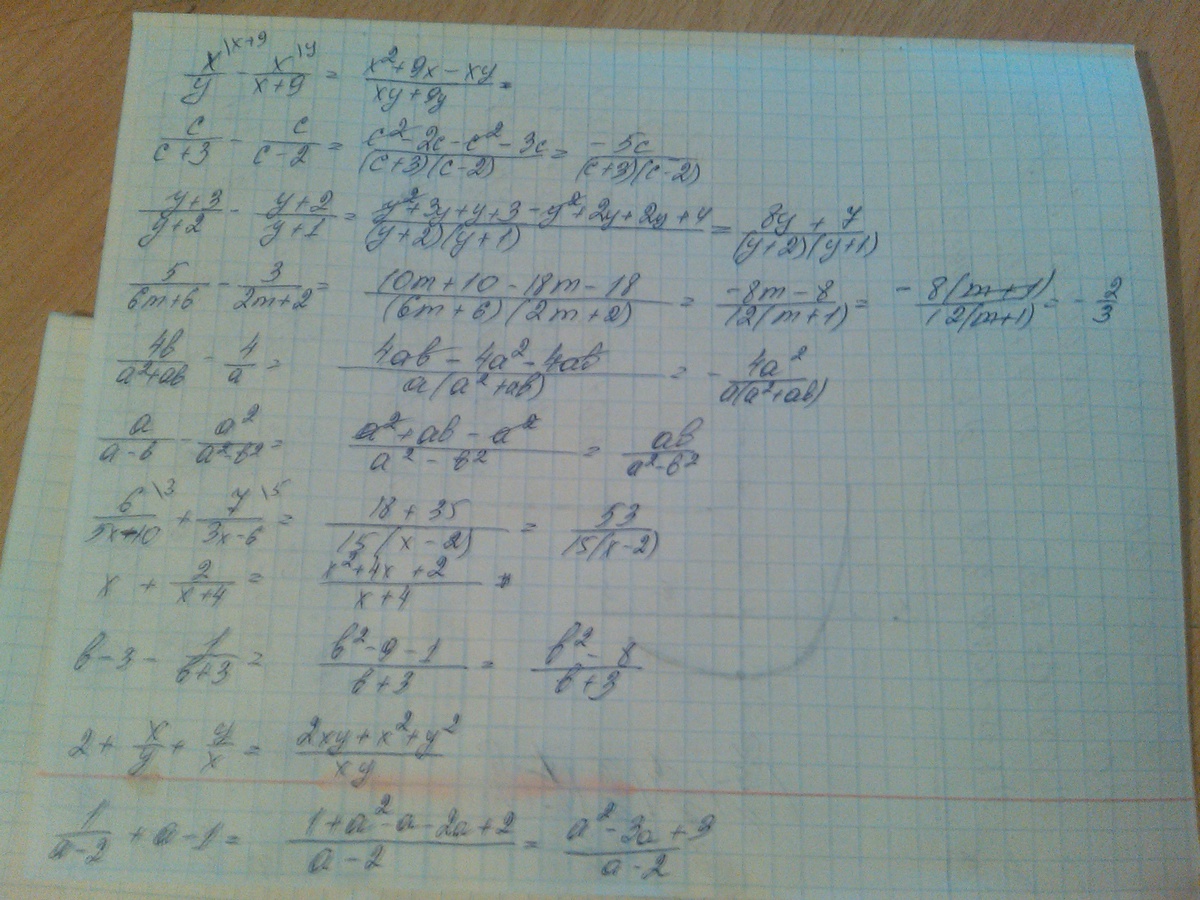 x\x+9/y - x\y/(x+9) = (x²+9x-xy)/(xy+9y) =
c/(c+3) - c/(c-2) = (c²-2c-c²-3c)/((c+3)(c-2)) = -5c/((c+3)(c-2))
(y+3)/(y+2) - (y+2)/(y+1) = (y²+3y+y+3-y²+2y+2y+4)/((y+2)(y+1)) = (8y+7)/((y+2)(y+1))
5/(6m+6) - 3/(2m+2) = (10m+10-18m-18)/((6m+6)(2m+2)) = (-8m-8)/(12(m+1)) = -8(m+1)/(12(m+1)) = -2/3
4b/(a²+ab) - 4/a = (4ab-4a²-4ab)/(a(a²+ab)) = -4a²/(a(a²+ab))
a/(a-b) - a²/(a²-b²) = (a²+ab-a²)/(a²-b²) = ab/(a²-b²)
6\3/(5x-10) + 7\5/(3x-6) = (18+35)/(15(x-2)) = 53/(15(x-2))
x + 2/(x+4) = (x²+4x+2)/(x+4)
b-3 - 1/(b+3) = (b²-9-1)/(b+3) = (b²-8)/(b+3)
2 + x/y + y/x = (2xy+x²+y²)/(xy)
1/(a-2) + a-1 = (1+a²-a-2a+2)/(a-2) = (a²-3a+3)/(a-2)